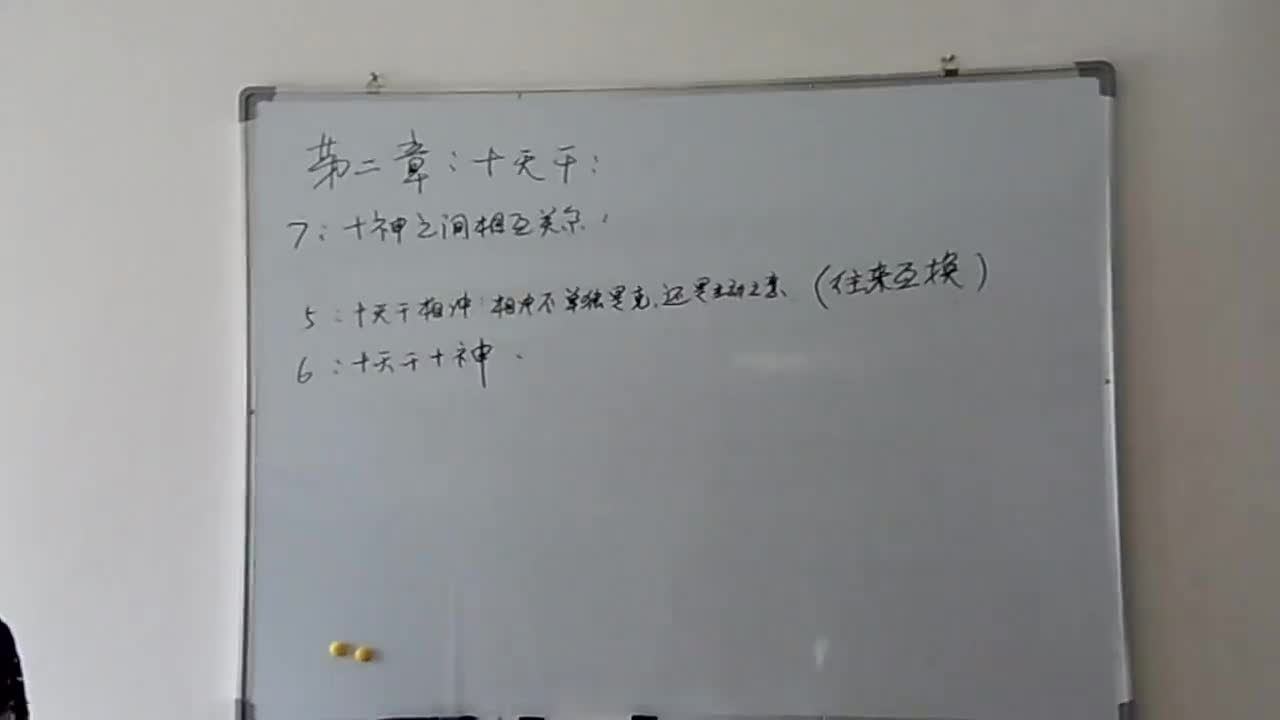 第二章：十天干：
7：十神之间相互关系：
5：十天干相冲：相冲不单独是克，还是主动之意（往来互换）
6：十天干十神.